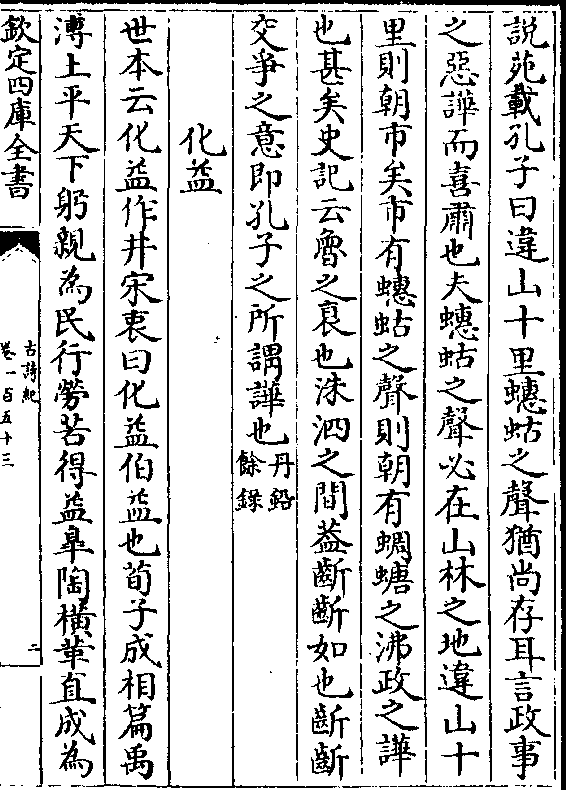 説苑載孔子曰違山十里蟪蛄之聲猶尚存耳言政事
之惡譁而喜肅也夫蟪蛄之聲必在山林之地違山十
里則朝市矣市有蟪蛄之聲則朝有蜩螗之沸政之譁
也甚矣史記云魯之衰也洙泗之間葢齗齗如也齗齗
交爭之意即孔子之所謂譁也丹鉛
餘錄
化益
世本云化益作井宋衷曰化益伯益也荀子成相篇禹
溥土平天下躬親為民行勞苦得益臯陶横革直成為
欽定四庫全書
古詩紀
卷一百五十三
二